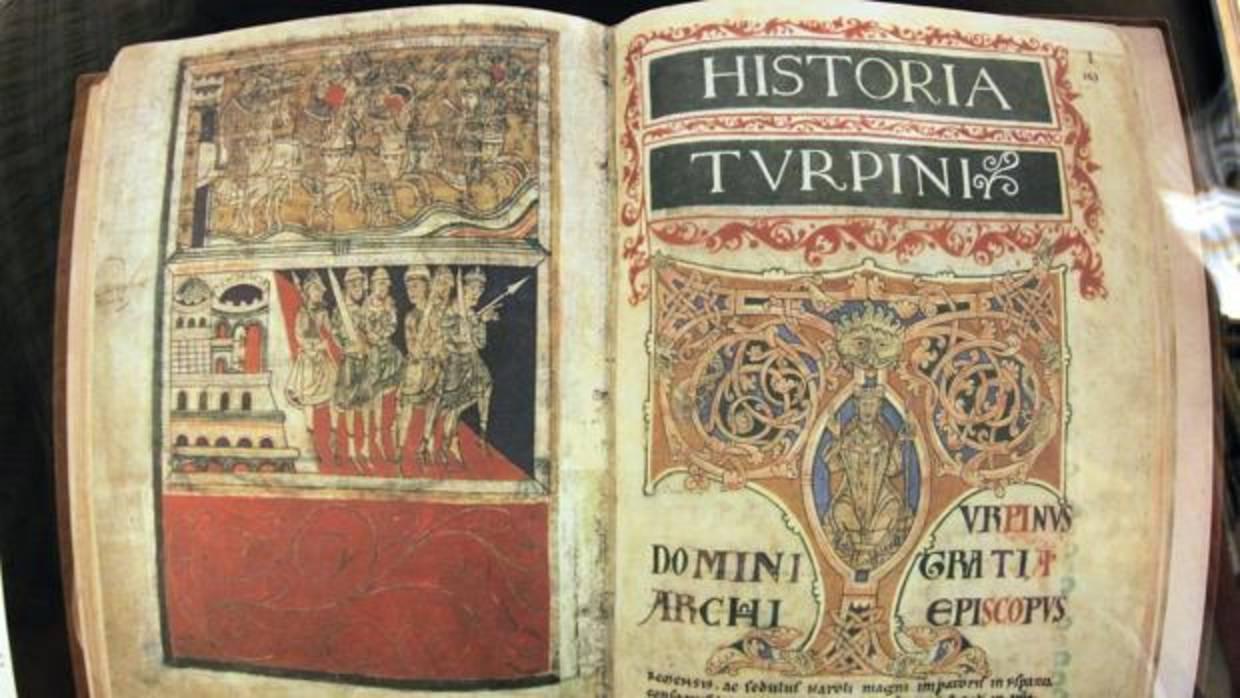 HISTORIA
TVRPINI
VRPINVS
DOMINI GRATIA
ARCHI EPISCOPVS
REMENSIS, ac sedulus Karoli magni imperatoris in Yspania